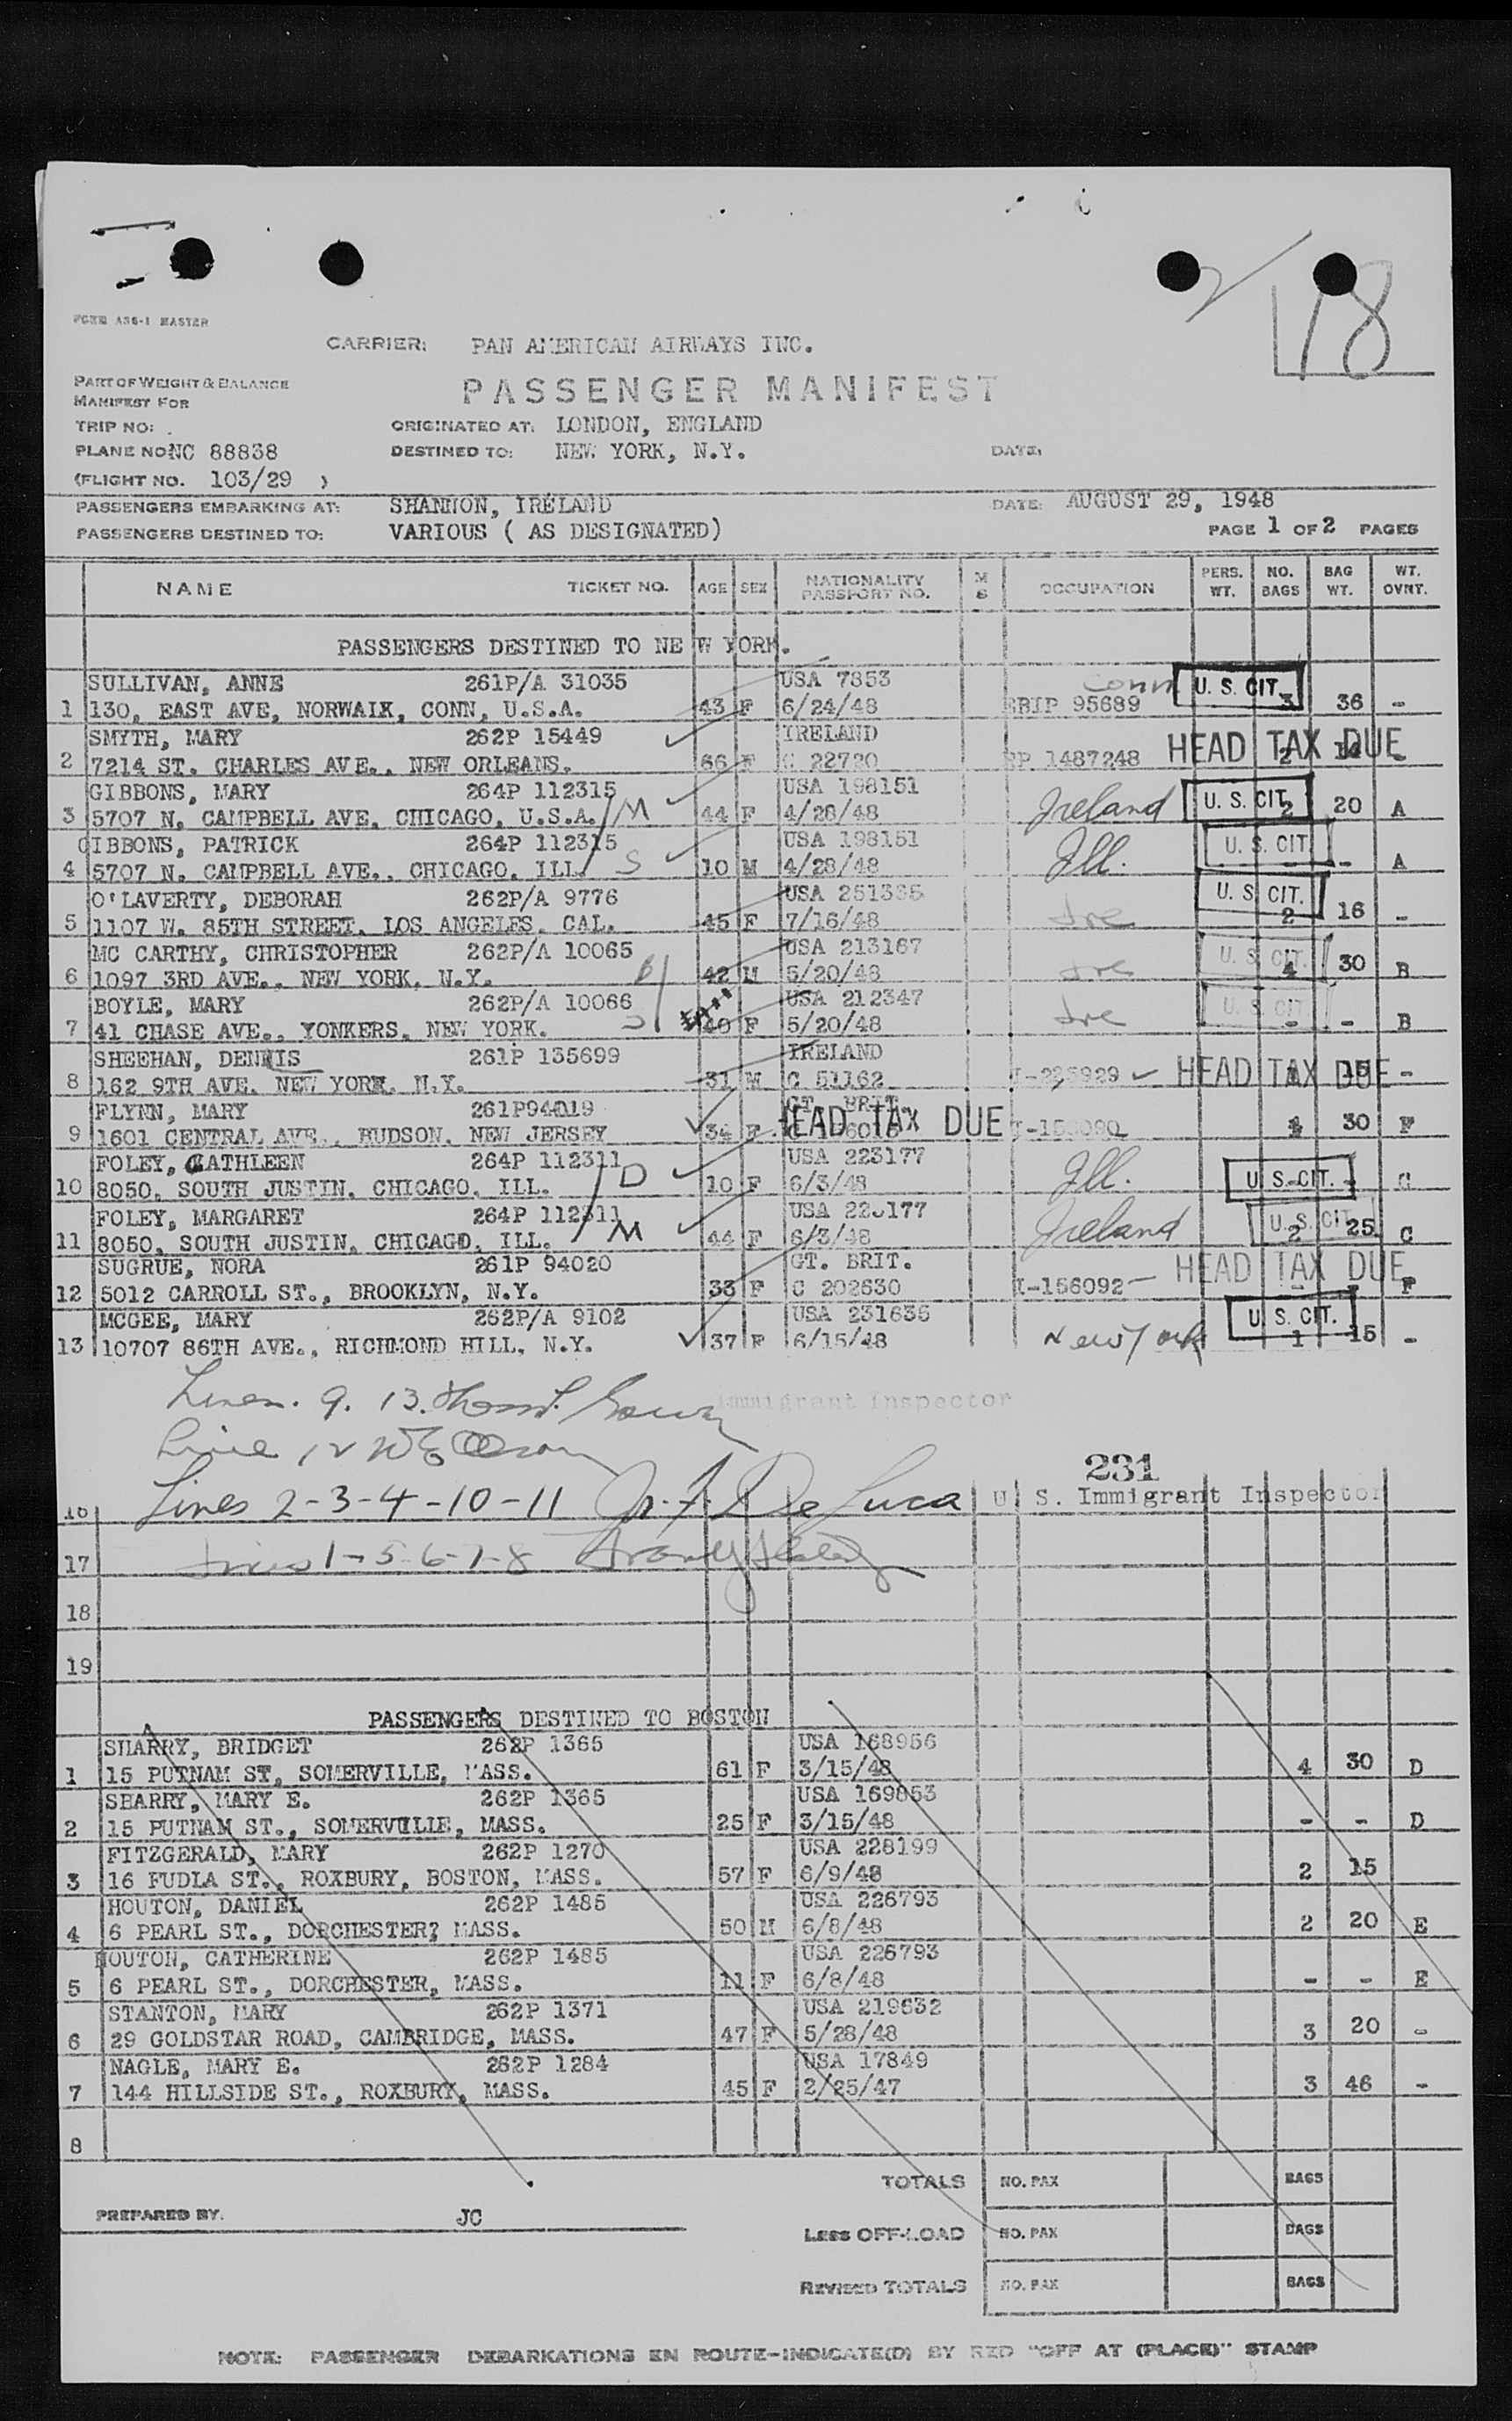 18
FORM A86-1 MASTER
CARRIER: PAN AMERICAN AIRWAYS INC.
PART OF WEIGHT & BALANCE
MANIFEST FOR
PASSENGER MANIFEST
TRIP NO: . ORIGINATED AT: LONDON, ENGLAND
PLANE NO: NC 88838 DESTINED TO: NEW YORK, N.Y. DATE:
(FLIGHT NO. 103/29 )
PASSENGERS EMBARKING AT: SHANNON, IRELAND DATE: AUGUST 29, 1948
PASSENGERS DESTINED TO: VARIOUS ( AS DESIGNATED) PAGE 1 OF 2 PAGES
NAME TICKET NO. AGE SEX NATIONALITY PASSPORT NO. M S OCCUPATION PERS. WT. NO. BAGS BAG WT. WT. OVNT.
PASSENGERS DESTINED TO NEW YORK.
SULLIVAN, ANNE 261P/A 31035 USA 7853 Conn U. S. CIT.
1 130, EAST AVE, NORWALK, CONN, U.S.A. 43 F 6/24/48 95689 3 36 -
SMYTH, MARY 262P 15449 IRELAND
2 7214 ST. CHARLES AVE., NEW ORLEANS. 66 F C 22720 RP 1487248 HEAD TAX DUE 2 -
GIBBONS, MARY 264P 112315 USA 198151
3 5707 N. CAMPBELL AVE, CHICAGO, U.S.A. M 44 F 4/28/48 Ireland U. S. CIT. 2 20 A
GIBBONS, PATRICK 264P 112315 USA 198151 U. S. CIT.
4 5707 N. CAMPBELL AVE., CHICAGO, ILL. S 10 M 4/28/48 Ill. - - A
O'LAVERTY, DEBORAH 262P/A 9776 USA 251335 U. S. CIT.
5 1107 W. 85TH STREET, LOS ANGELES, CAL. 45 F 7/16/48 Ire 2 16 -
MC CARTHY, CHRISTOPHER 262P/A 10065 USA 213167 U. S. CIT.
6 1097 3RD AVE., NEW YORK, N.Y. 42 M 5/20/48 Ire 4 30 B
BOYLE, MARY 262P/A 10066 USA 212347 U. S. CIT.
7 41 CHASE AVE., YONKERS, NEW YORK. 40 F 5/20/48 Ire - - B
SHEEHAN, DENNIS 261P 135699 IRELAND
8 162 9TH AVE. NEW YORK, N.Y. 31 M C 51162 HEAD TAX DUE 15 -
FLYNN, MARY 261P94019 GT. BRIT.
9 1601 CENTRAL AVE., HUDSON, NEW JERSEY 34 F HEAD TAX DUE 30 F
FOLEY, CATHLEEN 264P 112311 USA 223177
10 8050, SOUTH JUSTIN, CHICAGO, ILL. D 10 F 6/3/48 Ill. U. S. CIT. -
FOLEY, MARGARET 264P 112311 USA 223177 U. S. CIT.
11 8050, SOUTH JUSTIN, CHICAGO, ILL. M 44 F 6/3/48 Ireland 2 25 C
SUGRUE, NORA 261P 94020 GT. BRIT. HEAD TAX DUE
12 5012 CARROLL ST., BROOKLYN, N.Y. 33 F C 202630 I-156092 - - F
MCGEE, MARY 262P/A 9102 USA 231636 U. S. CIT.
13 10707 86TH AVE., RICHMOND HILL, N.Y. 37 F 6/15/48 New York 1 15 -
Lines. 9. 13. Immigrant Inspector
Line 12
231
16 Lines 2-3-4-10-11 De Luca U. S. Immigrant Inspector
17 Lines 1-5-6-7-8
18
19
PASSENGERS DESTINED TO BOSTON
SHARRY, BRIDGET 262P 1365 USA 168956
1 15 PUTNAM ST, SOMERVILLE, MASS. 61 F 3/15/48 4 30 D
SHARRY, MARY E. 262P 1365 USA 169053
2 15 PUTNAM ST., SOMERVILLE, MASS. 25 F 3/15/48 - - D
FITZGERALD, MARY 262P 1270 USA 228199
3 16 FUDLA ST., ROXBURY, BOSTON, MASS. 57 F 6/9/48 2 15
HOUTON, DANIEL 262P 1485 USA 226793
4 6 PEARL ST., DORCHESTER? MASS. 50 M 6/8/48 2 20 E
HOUTON, CATHERINE 262P 1485 USA 226793
5 6 PEARL ST., DORCHESTER, MASS. 11 F 6/8/48 - - E
STANTON, MARY 262P 1371 USA 219632
6 29 GOLDSTAR ROAD, CAMBRIDGE, MASS. 47 F 5/28/48 3 20 -
NAGLE, MARY E. 262P 1284 USA 17849
7 144 HILLSIDE ST., ROXBURY, MASS. 45 F 2/25/47 3 46 -
8
TOTALS NO. PAX BAGS
PREPARED BY. JC
LESS OFF-LOAD NO. PAX BAGS
REVISED TOTALS NO. PAX BAGS
NOTE: PASSENGER DEBARKATIONS EN ROUTE-INDICATE(D) BY RED "OFF AT (PLACE)" STAMP